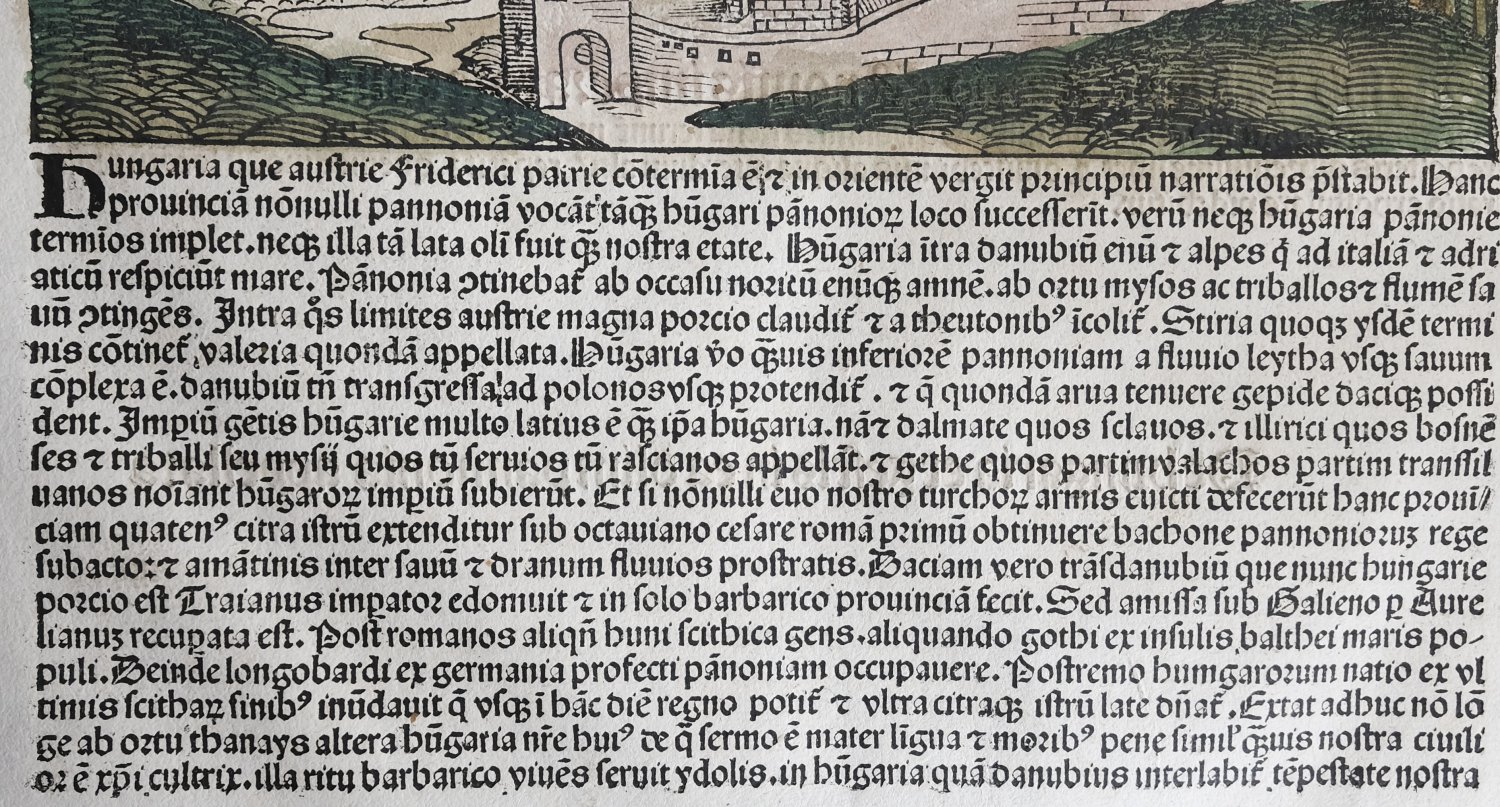 Hungaria que austrie Friderici patrie cōtermīa ē ⁊ in orientē vergit principiū narratiōis p̄stabit. Hanc
prouinciā nōnulli pannoniā vocāt tāq̄ʒ hūgari pānonioꝝ loco successerīt. verū neqʒ hūgaria pānonie
termīos implet. neqʒ illa tā lata olī fuit q̄ʒ nostra etate. Hūgaria ītra danubiū enū ⁊ alpes q̄ ad italiā ⁊ adri
aticū respiciūt mare. Pānonia ↄtinebat᷑ ab occasu noricū enūqʒ amnē. ab ortu mysos ac triballos ⁊ flumē sa
uū ↄtingēs. Intra qͦs limites austrie magna porcio claudit᷑ ⁊ a theutonibꝰ īcolit᷑. Stiria quoqʒ ysdē termi
nis cōtinet᷑ valeria quondā appellata. Hūgaria v̄o q̄ʒuis inferiorē pannoniam a fluuio leytha vsqʒ sauum
cōplexa ē. danubiū tn̄ transgressa ad polonos vsqʒ protendit᷑. ⁊ q̄ quondā arua tenuere gepide daciqʒ possi
dent. Impiū gētis hūgarie multo latius ē q̄ʒ ip̄a hūgaria. nā ⁊ dalmate quos sclauos. ⁊ illirici quos bosnē
ses ⁊ triballi seu mysij quos tū seruios tū rascianos appellāt. ⁊ gethe quos partim valachos partim transsil
uanos noīant hūgaroꝝ imꝑiū subierūt. Et si nōnulli euo nostro turchoꝝ armis euicti defecerūt hanc prouī/
ciam quatenꝰ citra istrū extenditur sub octauiano cesare romā primū obtinuere bachone pannonioruʒ rege
subacto: ⁊ amātinis inter sauū ⁊ dranum fluuios prostratis. Daciam vero trāsdanubiū que nunc hungarie
porcio est Traianus imꝑator edomuit ⁊ in solo barbarico prouinciā fecit. Sed amissa sub Galieno ꝑ Aure
lianuʒ recuꝑata est. Post romanos aliqn̄ huni scithica gens. aliquando gothi ex insulis balthei maris po-
puli. Deinde longobardi ex germania profecti pānoniam occupauere. Postremo humgarorum natio ex vl
timis scithaꝝ finibꝰ inūdauit q̄ vsqʒ ī hāc diē regno potit᷑ ⁊ vltra citraqʒ istrū late dn̄at᷑. Extat adhuc nō lō
ge ab ortu thanays altera hūgaria nr̄e huiꝰ de q̄ sermo ē mater līgua ⁊ moribꝰ pene simil' q̄ʒuis nostra ciuili
or ē xp̄i cultrix. illa ritu barbarico viuēs seruit ydolis. in hūgaria quā danubius interlabit᷑ tēpestate nostra